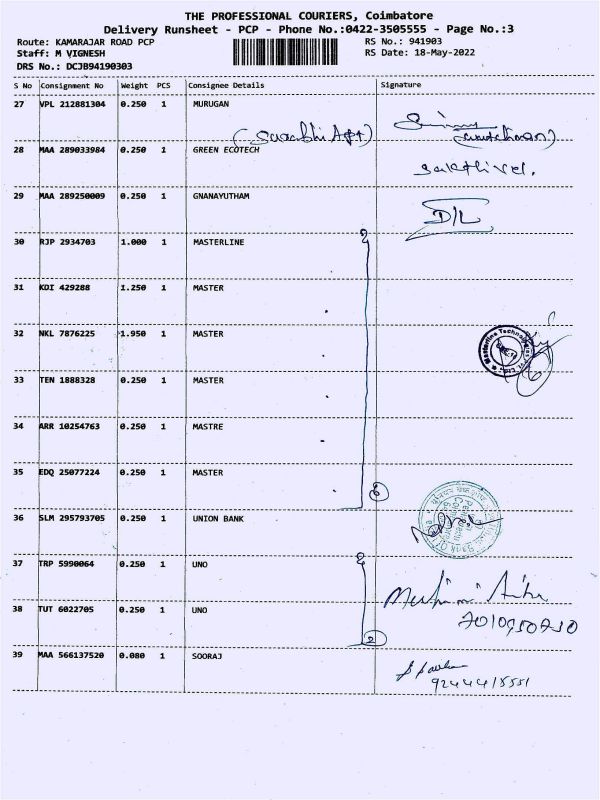 THE PROFESSIONAL COURIERS, Coimbatore
Delivery Runsheet - PCP - Phone No.:0422-3505555 - Page No.:3
Route: KAMARAJAR ROAD PCP
RS No.: 941903
Staff: M VIGNESH
RS Date: 18-May-2022
DRS No.: DCJB94190303
S No Consignment No Weight PCS Consignee Details Signature
27 VPL 212881304 0.250 1 MURUGAN
28 MAA 289033984 0.250 1 GREEN ECOTECH
Sakthivel.
29 MAA 289250009 0.250 1 GNANAYUTHAM
D/L
30 RJP 2934703 1.000 1 MASTERLINE
31 KDI 429288 1.250 1 MASTER
32 NKL 7876225 1.950 1 MASTER
Masterline Technologies
33 TEN 1888328 0.250 1 MASTER
34 ARR 10254763 0.250 1 MASTRE
35 EDQ 25077224 0.250 1 MASTER
6
36 SLM 295793705 0.250 1 UNION BANK
37 TRP 5990064 0.250 1 UNO
38 TUT 6022705 0.250 1 UNO
2
39 MAA 566137520 0.080 1 SOORAJ